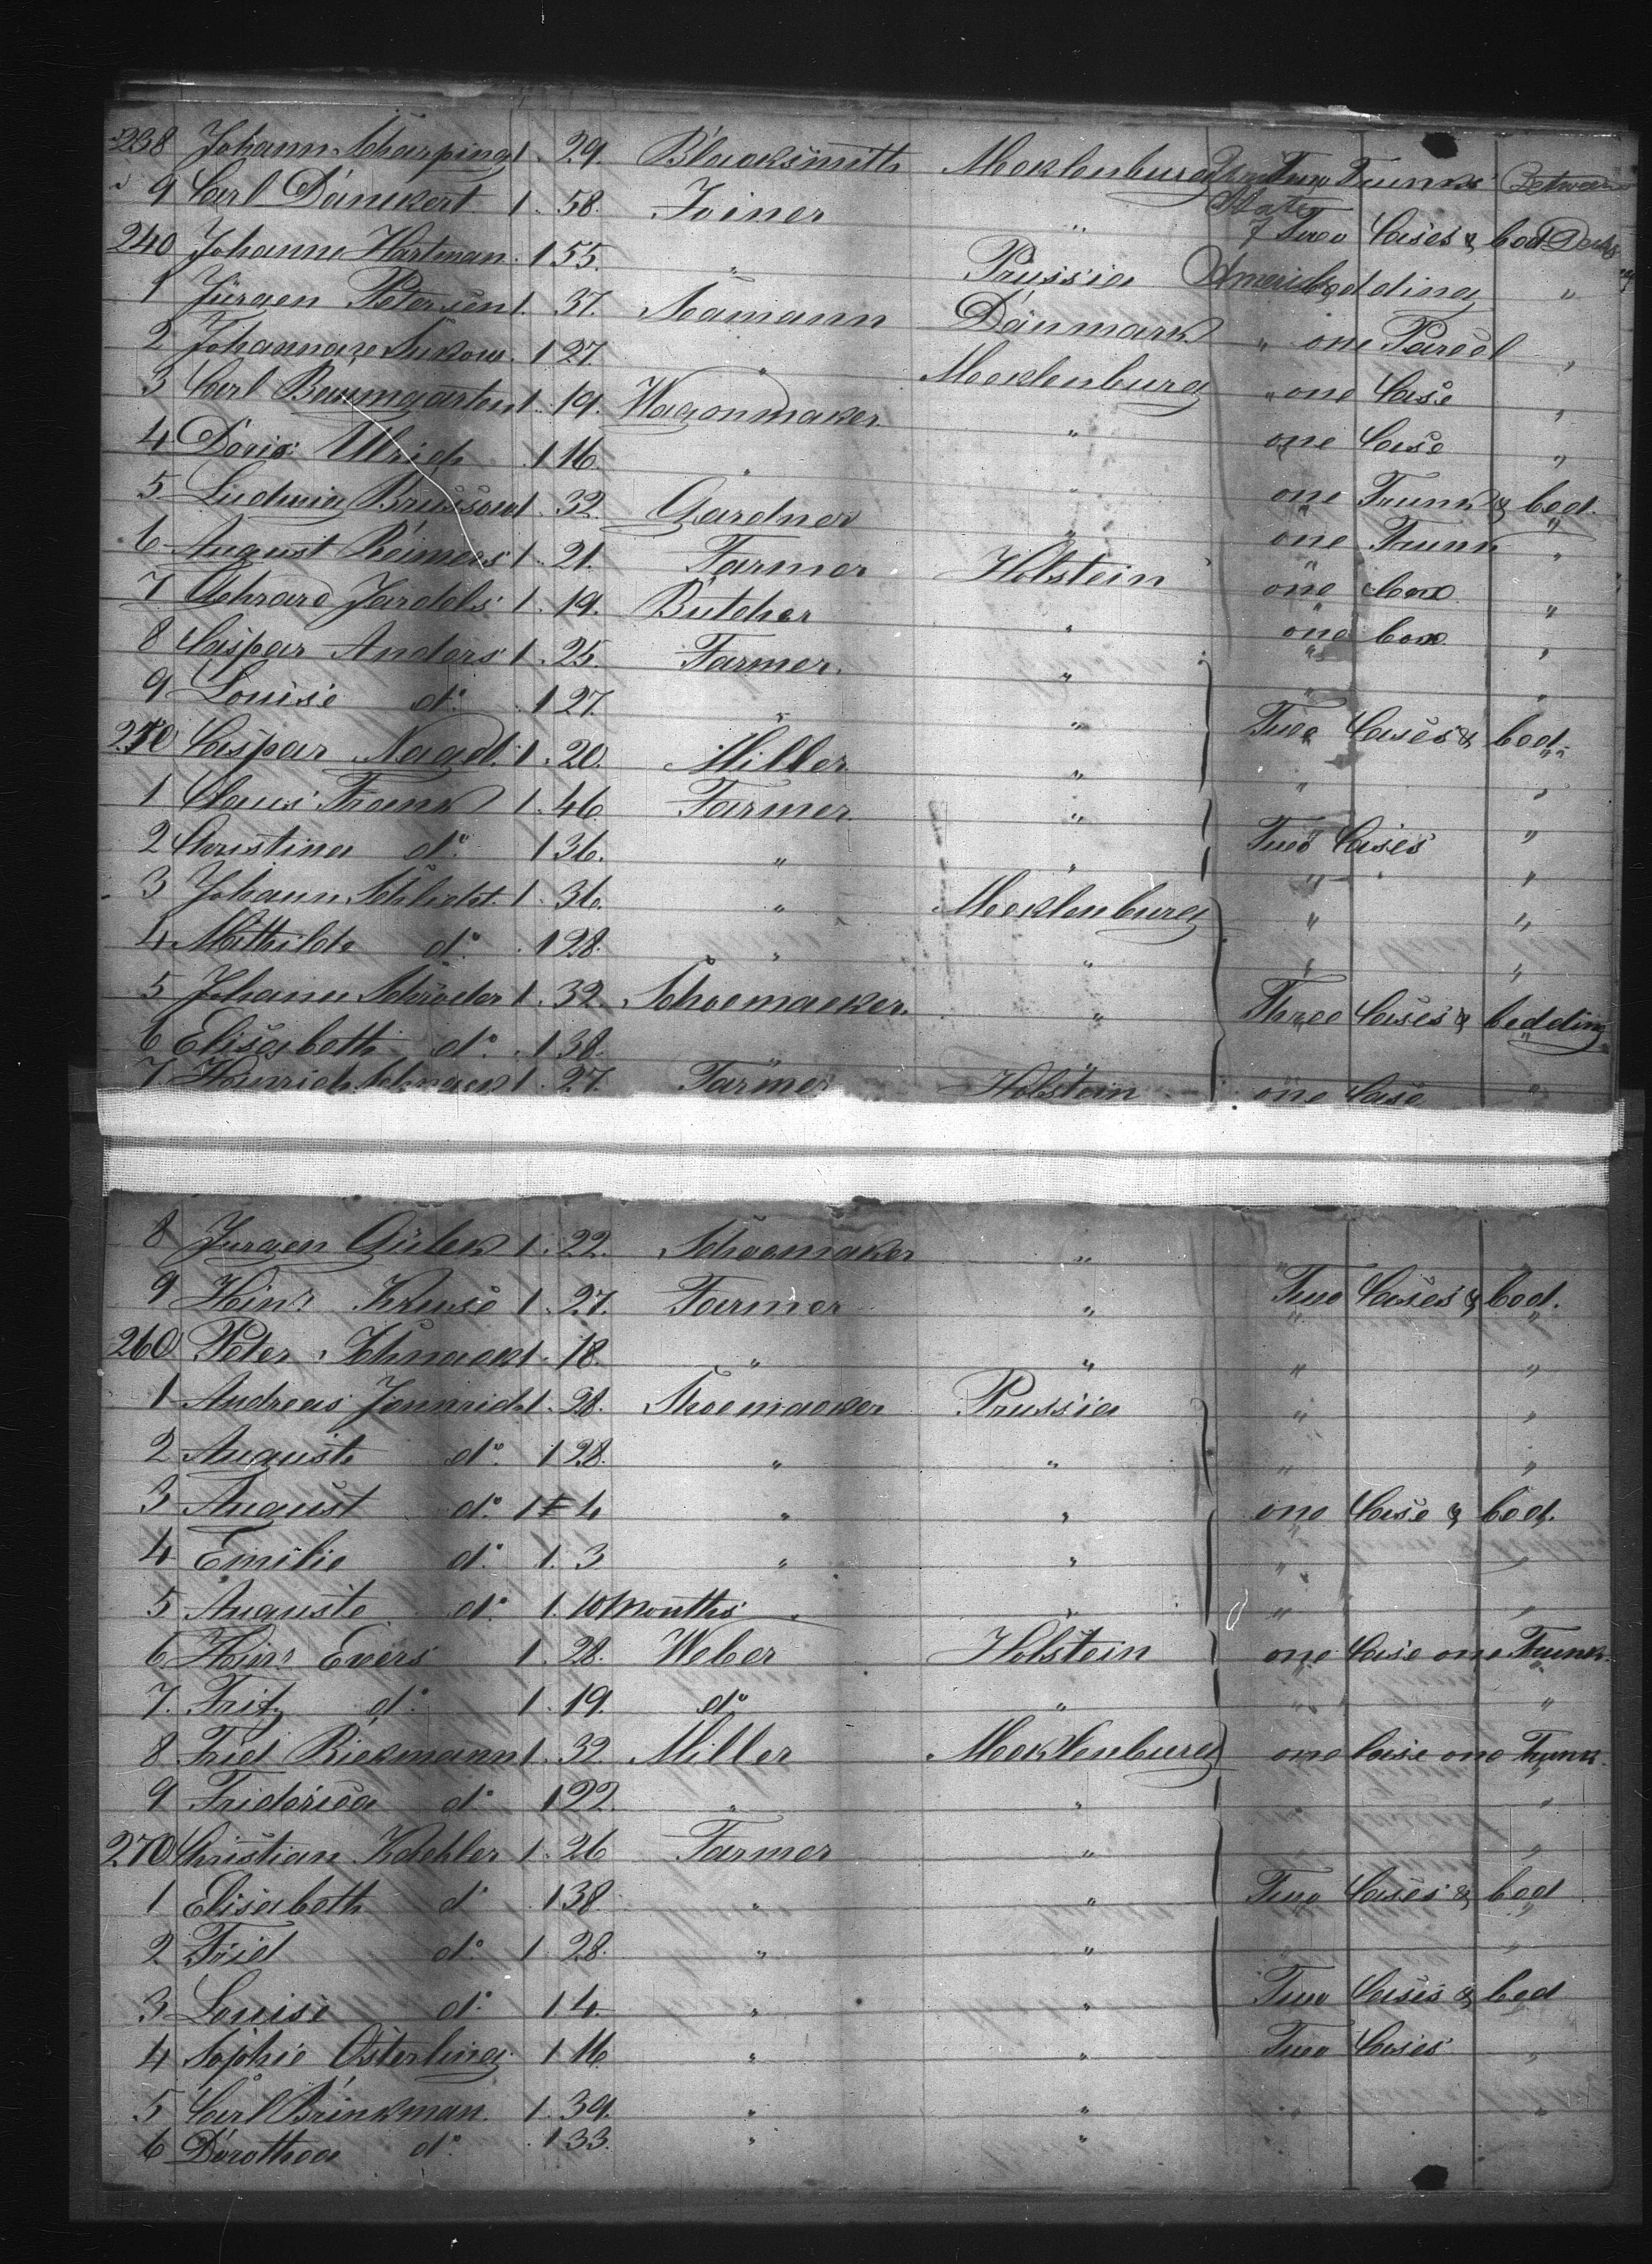 238 Johann Scharping 1. 29. Blacksmith Mecklenburg Two Trunks Between
9 Carl Dänckert 1. 58. Joiner " States of Two Cases & bed Decks
240 Johann Hartman 1 55. " Prussia America bedding "
1 Jürgen Petersen 1. 37. Seamann Dänmark " one Parcel "
2 Johann Sukow 1 27. " Mecklenburg " one Case "
3 Carl Baumgarten 1. 19. Wagonmaker " one Case "
4 Doris Ulrich 1 16. " " one Trunk & bed.
5 Ludwig Brussow 1. 32. Gardner " one Trunk "
6 August Reimers 1. 21. Farmer Holstein one box "
7 Gehrard Jardels 1. 19. Butcher " one box "
8 Caspar Anders 1. 25. Farmer. " " "
9 Louise do 1 27. " " Two Cases & bed.
250 Caspar Naget 1. 20. Miller " " "
1 Claus Frank 1. 46 Farmer " Two Cases "
2 Christina do 1 36. " " " "
3 Johann Schlicht 1. 36. " Mecklenburg " "
4 Mathilde do 1 28. " " " "
5 Johann Schröder 1. 32. Schoemacker. " Three Cases & bedding
6 Elisabeth do 1 38.
7 Heinrich Schnack 1. 27. Farmer Holstein one Case "
8 Jurgen Gülck 1. 22. Schoemaker " "
9 Hinr Kruse 1. 27. Farmer " Two Cases & bed.
260 Peter Schnack 1. 18. " " " "
1 Andreas 1. 28. Shoemacker Prussia " "
2 Auguste do 1 28. " " " "
3 August do 1 4 " " one Case & bed.
4 Emilie do 1. 3 " " " "
5 Auguste do 1. 10 Months " " "
6 Hinr Evers 1. 28. Weber Holstein one Case one Trunk.
7. Fritz do 1. 19. do " " "
8 Fried Rickmann 1. 32. Miller Mecklenburg one Case one Trunk.
9 Fridericia do 1 22. " " " "
270 Christian Kaehler 1. 26 Farmer " " "
1 Elisabeth do 1 38. " " Two Cases & bed
2 Fried do 1 28. " " " "
3 Louise do 1 4 " " Two Cases & bed
4 Sophie Osterling. 1 16 " " Two Cases "
5 Carl Brinkman. 1. 39. " " " "
6 Dorothea do 1 33. " "